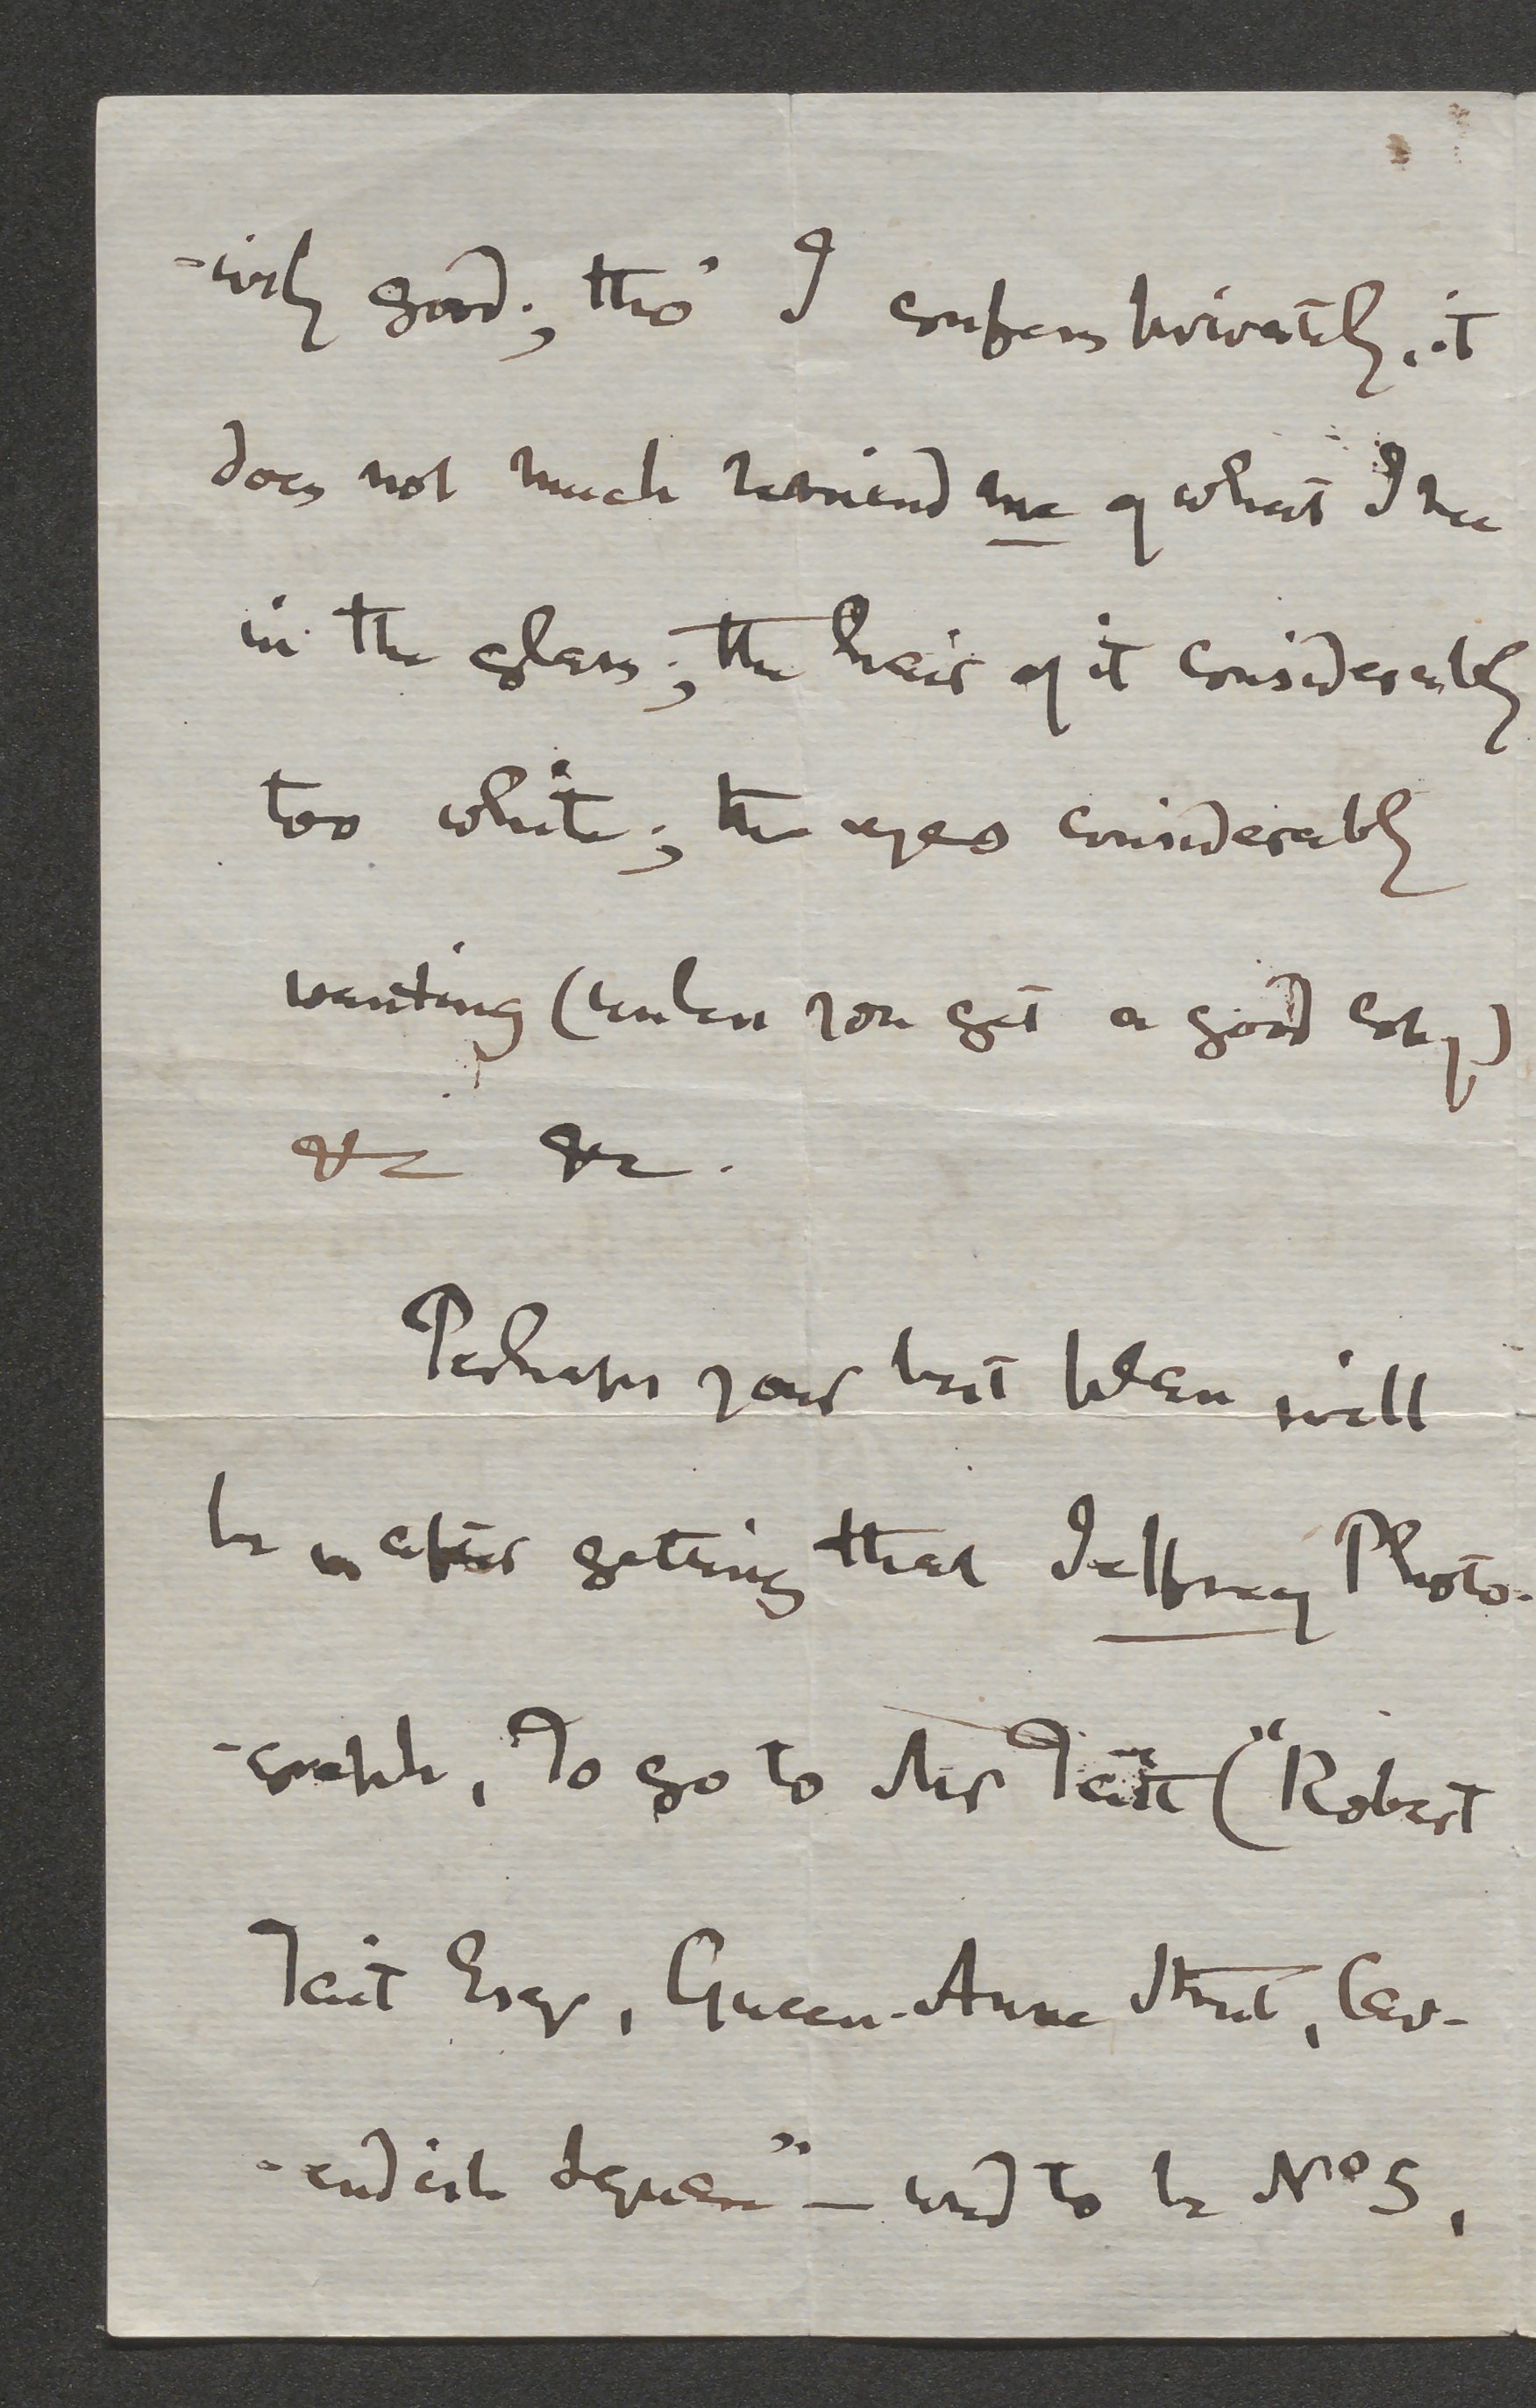 -ively good; tho' I confess privately, it
does not much remind me of what I see
in the glass; the hair of it considerably
too white; the eyes considerably
wanting (unless you get a good copy)
&c &c.
Perhaps your best plan will
be after getting that Jeffray Photo-
-graph, To go to Mr Tait ("Robert
Tait Esqr, Queen-Anne Street, Cav-
-endish Square" — used to be No 5,